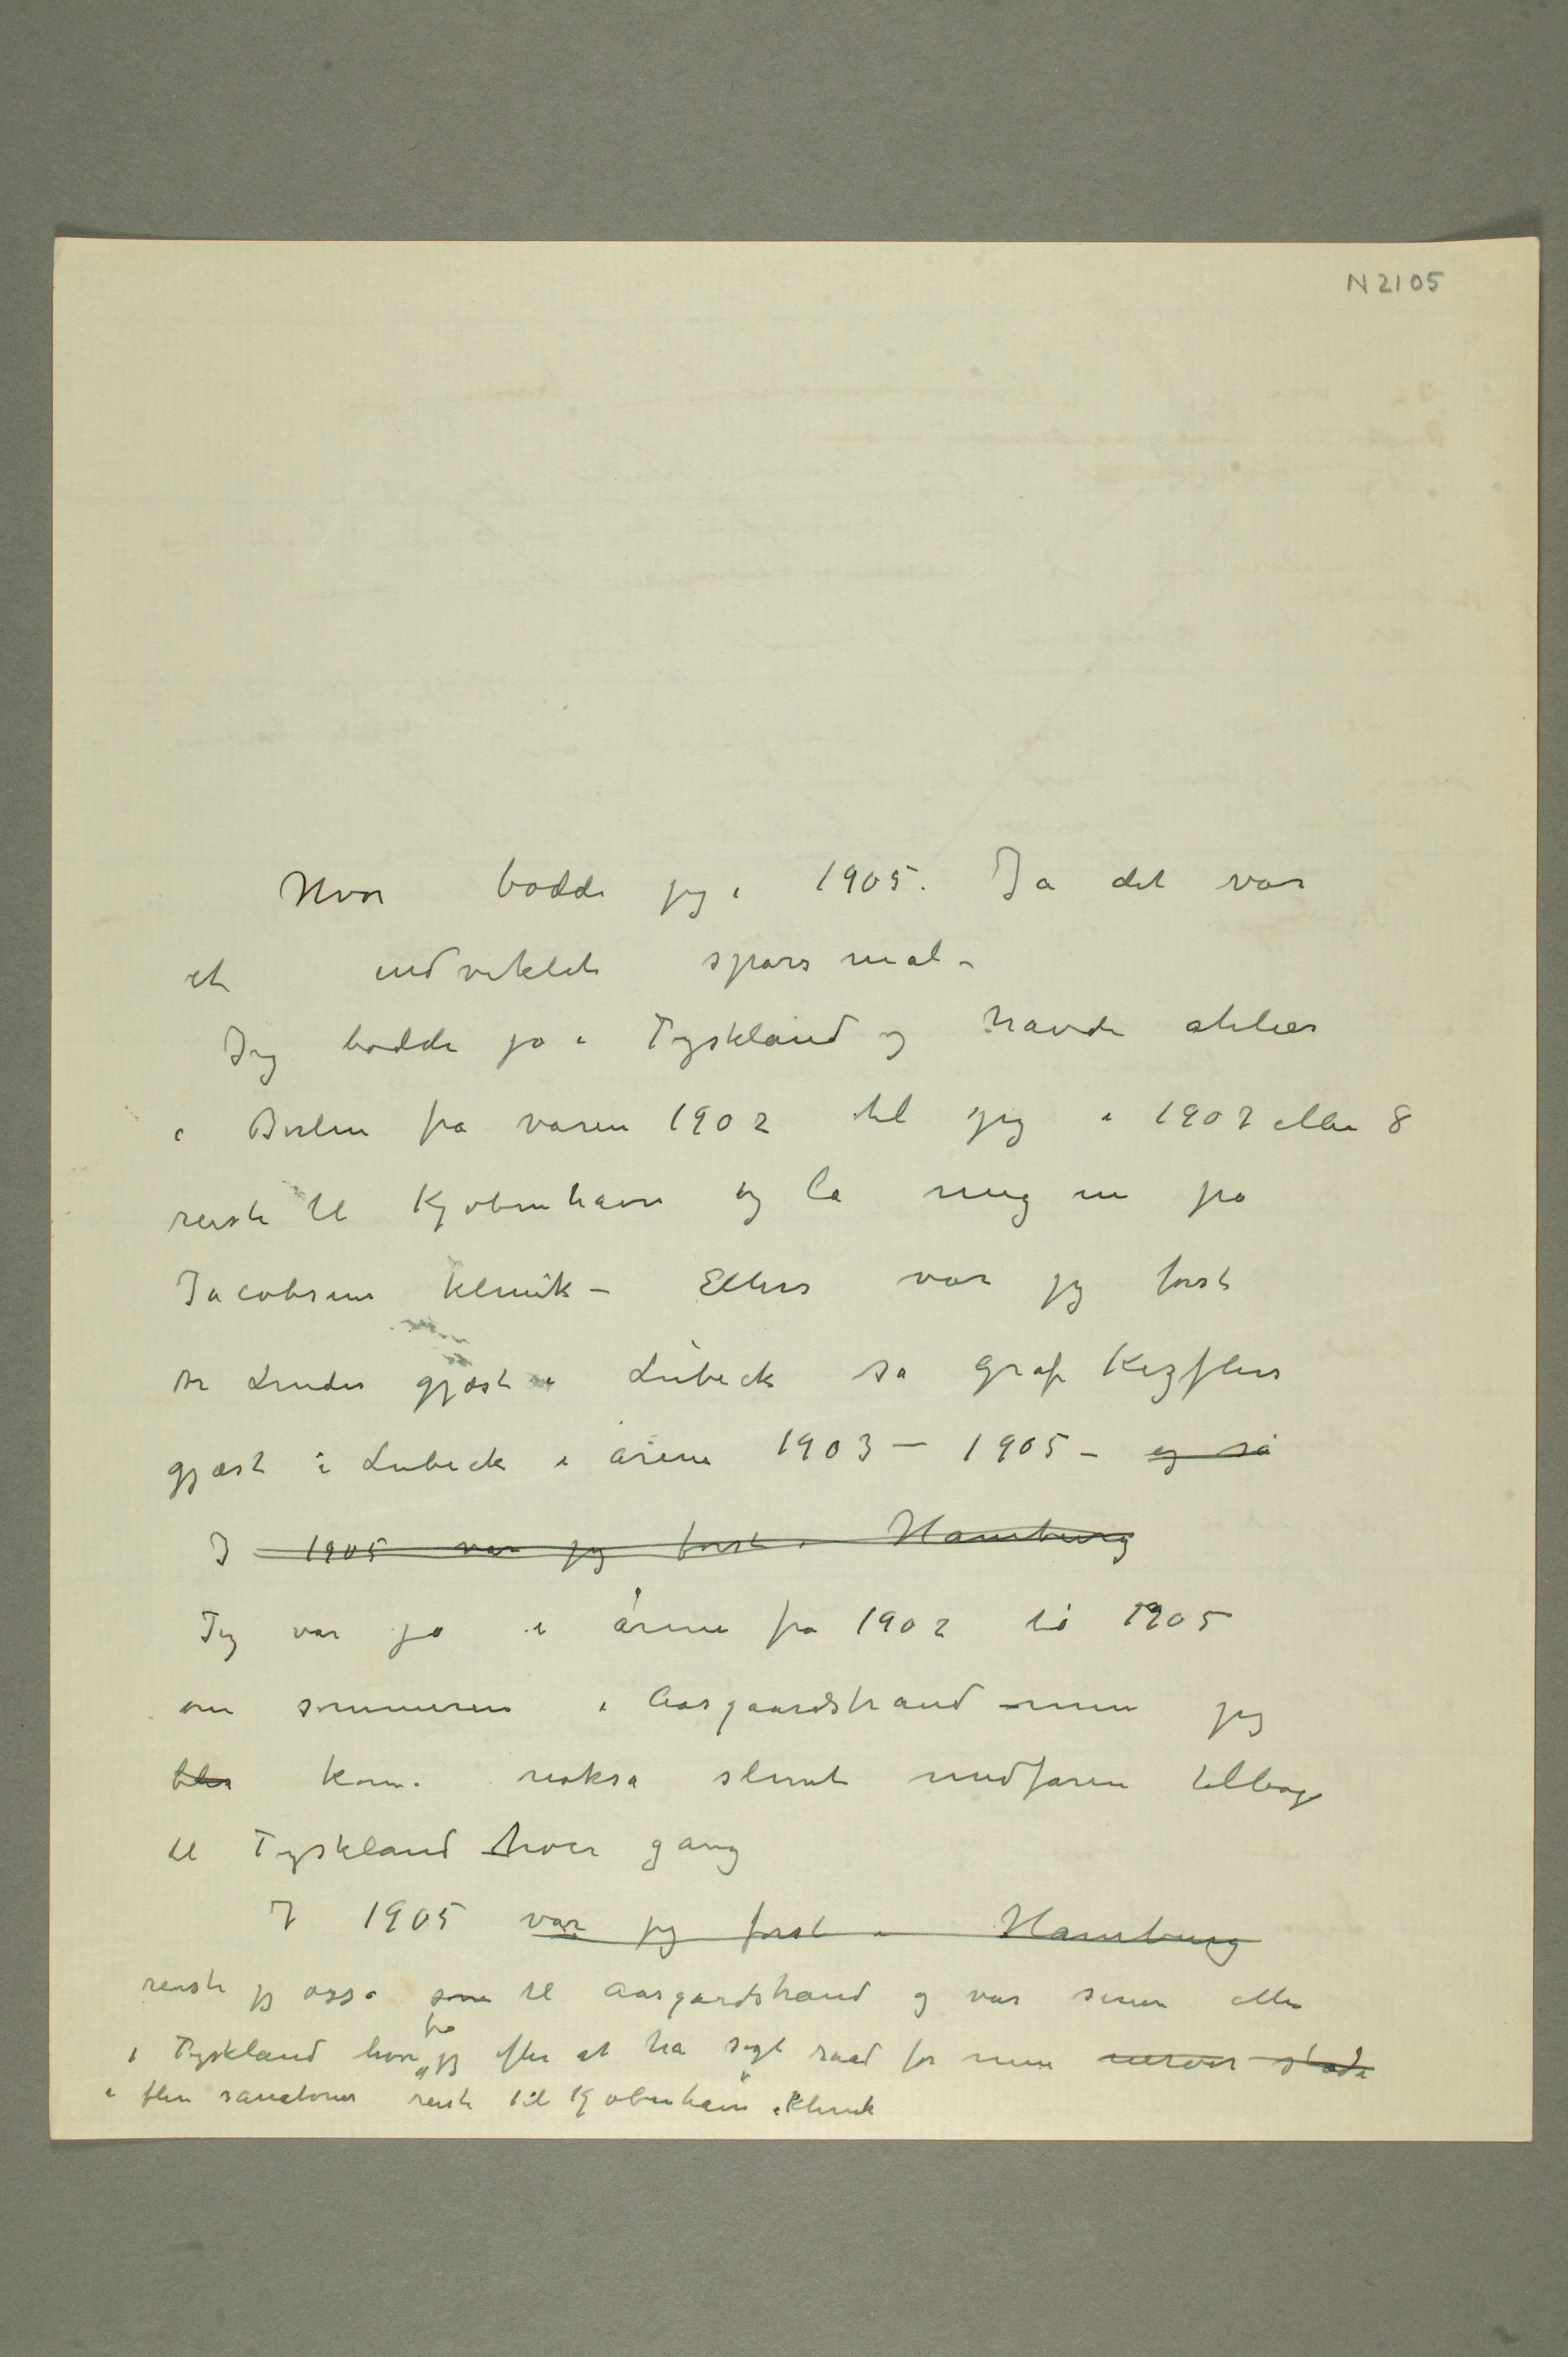 N 2105
Hvor bodde jeg i 1905. Ja det var
et indviklet spørsmål –
Jeg bodde jo i Tyskland og havde atelier
i Berlin fra våren 1902 til jeg i 1907 eller 8
reiste til Kjøbenhavn og la mig in på
Jacobsens klinik – Ellers var jeg først
Dr Lindes gjæst i Lübeck så Graf Kezflers
gjæst i Lubeck i årene 1903 – 1905 – og så
I 1905 var jeg først i Hamburg
Jeg var jo i årene fra 1902 til 1905
om sommeren i Aasgaardstrand – men jeg
blev kom nokså slemt medfaren tilbage
til Tyskland hver gang
I 1905 var jeg først i Hamburg
reiste jeg også til Aasgardstrand og var siden
i Tyskland hvor fra jeg efter at ha søgt raad for mine nerver
i flere sanatorier reiste til Kjøbenhavn i klinik